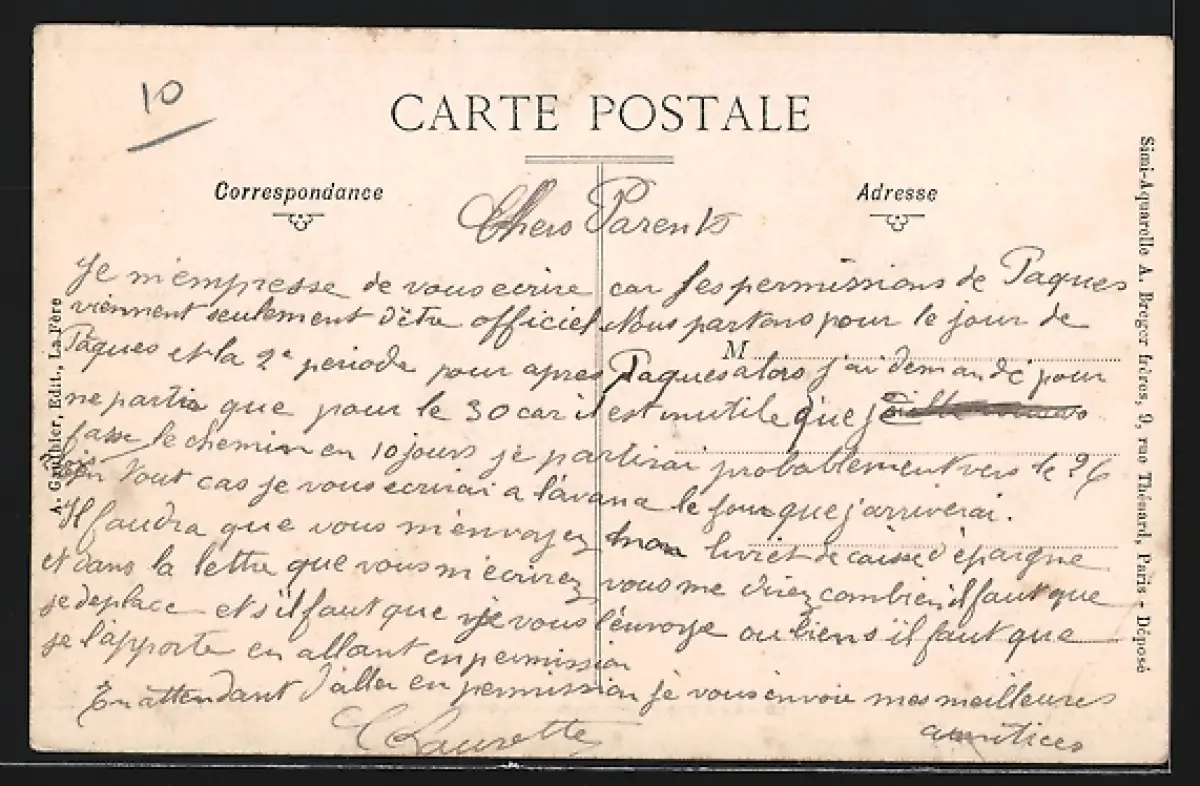 10
CARTE POSTALE
Correspondance
Adresse
Chers Parents
Je m'empresse de vous ecrire car les permissions de Paques
viennent seulement d'être officiel. Nous partons pour le jour de
M
Pâques et la 2e periode pour apres Paques alors j'ai demandé pour
ne partir que pour le 30 car il est inutile que je
fasse le chemin en 10 jours je partirai probablement vers le 26
En tout cas je vous ecrirai a l'avana le jour que j'arriverai.
Il faudra que vous m'envoyez mon livret de caisse d'épargne
et dans la lettre que vous m'écrirez vous me direz combien il faut que
je deplace et s'il faut que je vous l'envoye ou biens il faut que
je l'apporte en allant en permission
En attendant d'aller en permission je vous envoie mes meilleures
amitices
Laurette
A. Gauthier, Edit., La Fère
Simi-Aquarelle A. Breger frères, 9, rue Thénard, Paris - Déposé